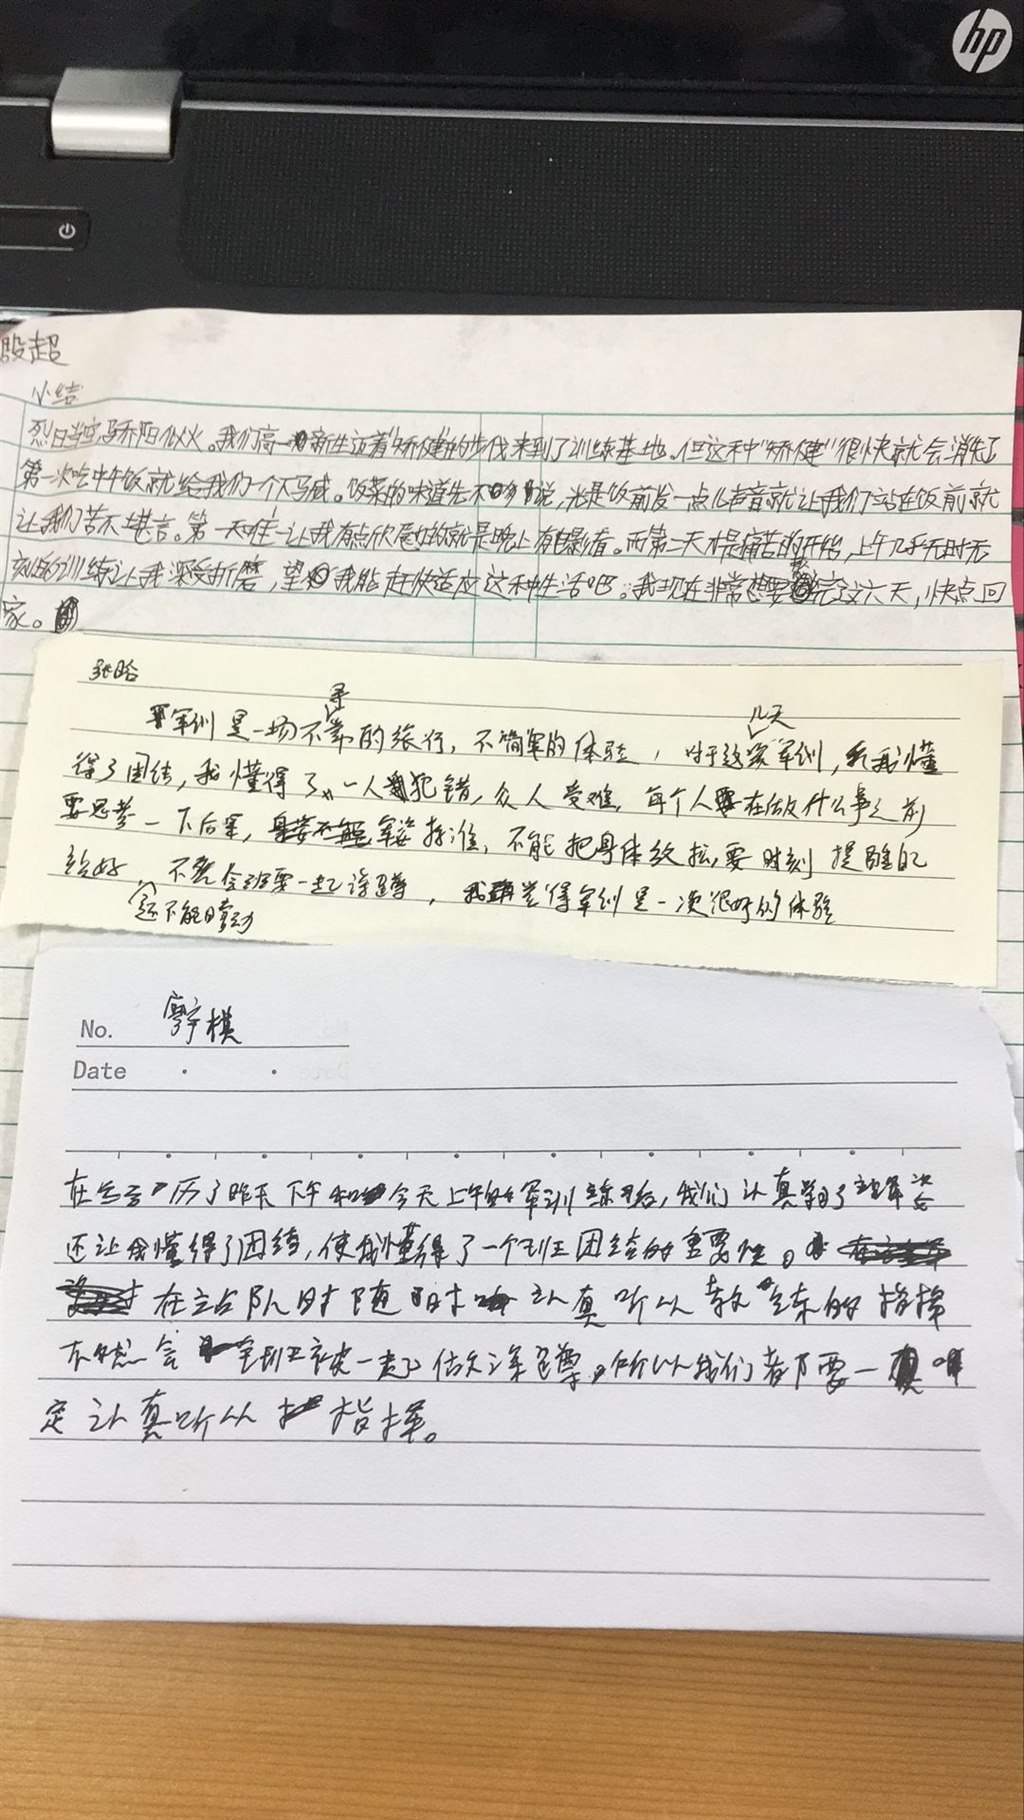 hp
殷超
小结
烈日当空,骄阳似火。我们高一新生迈着"矫健"的步伐来到了训练基地。但这种"矫健"很快就会消失了
第一次吃中午饭就给我们一个下马威。饭菜的味道先不多说,光是饭前发一点儿声音就让我们站在饭前就
让我们苦不堪言。第一天唯一让我有点欣慰的就是晚上有电影看。而第二天才是痛苦的开始,上午几乎无时无
刻的训练让我深受折磨,望我能赶快适应这种生活吧。我现在非常想要完这六天,快点回
家。
张晗
军训是一场不寻常的旅行,不简单的体验,对于这几天军训,我懂
得了团结,我懂得了,一人犯错,众人受难,每个人要在做什么事之前
要思考一下后果,军姿标准,不能把身体放松,要时刻提醒自己
站好,还不能晴动不然全班要一起深蹲,我觉得军训是一次很好的体验
No. 廖梓棋
Date
在经历了昨天下午和今天上午的军训练习后,我们认真学习了
还让我懂得了团结,使我懂得了一个班团结的重要性。
在站队时随时认真听从教练的指挥
不然会全班被一起做深蹲,所以我们都要一
定认真听从指挥。